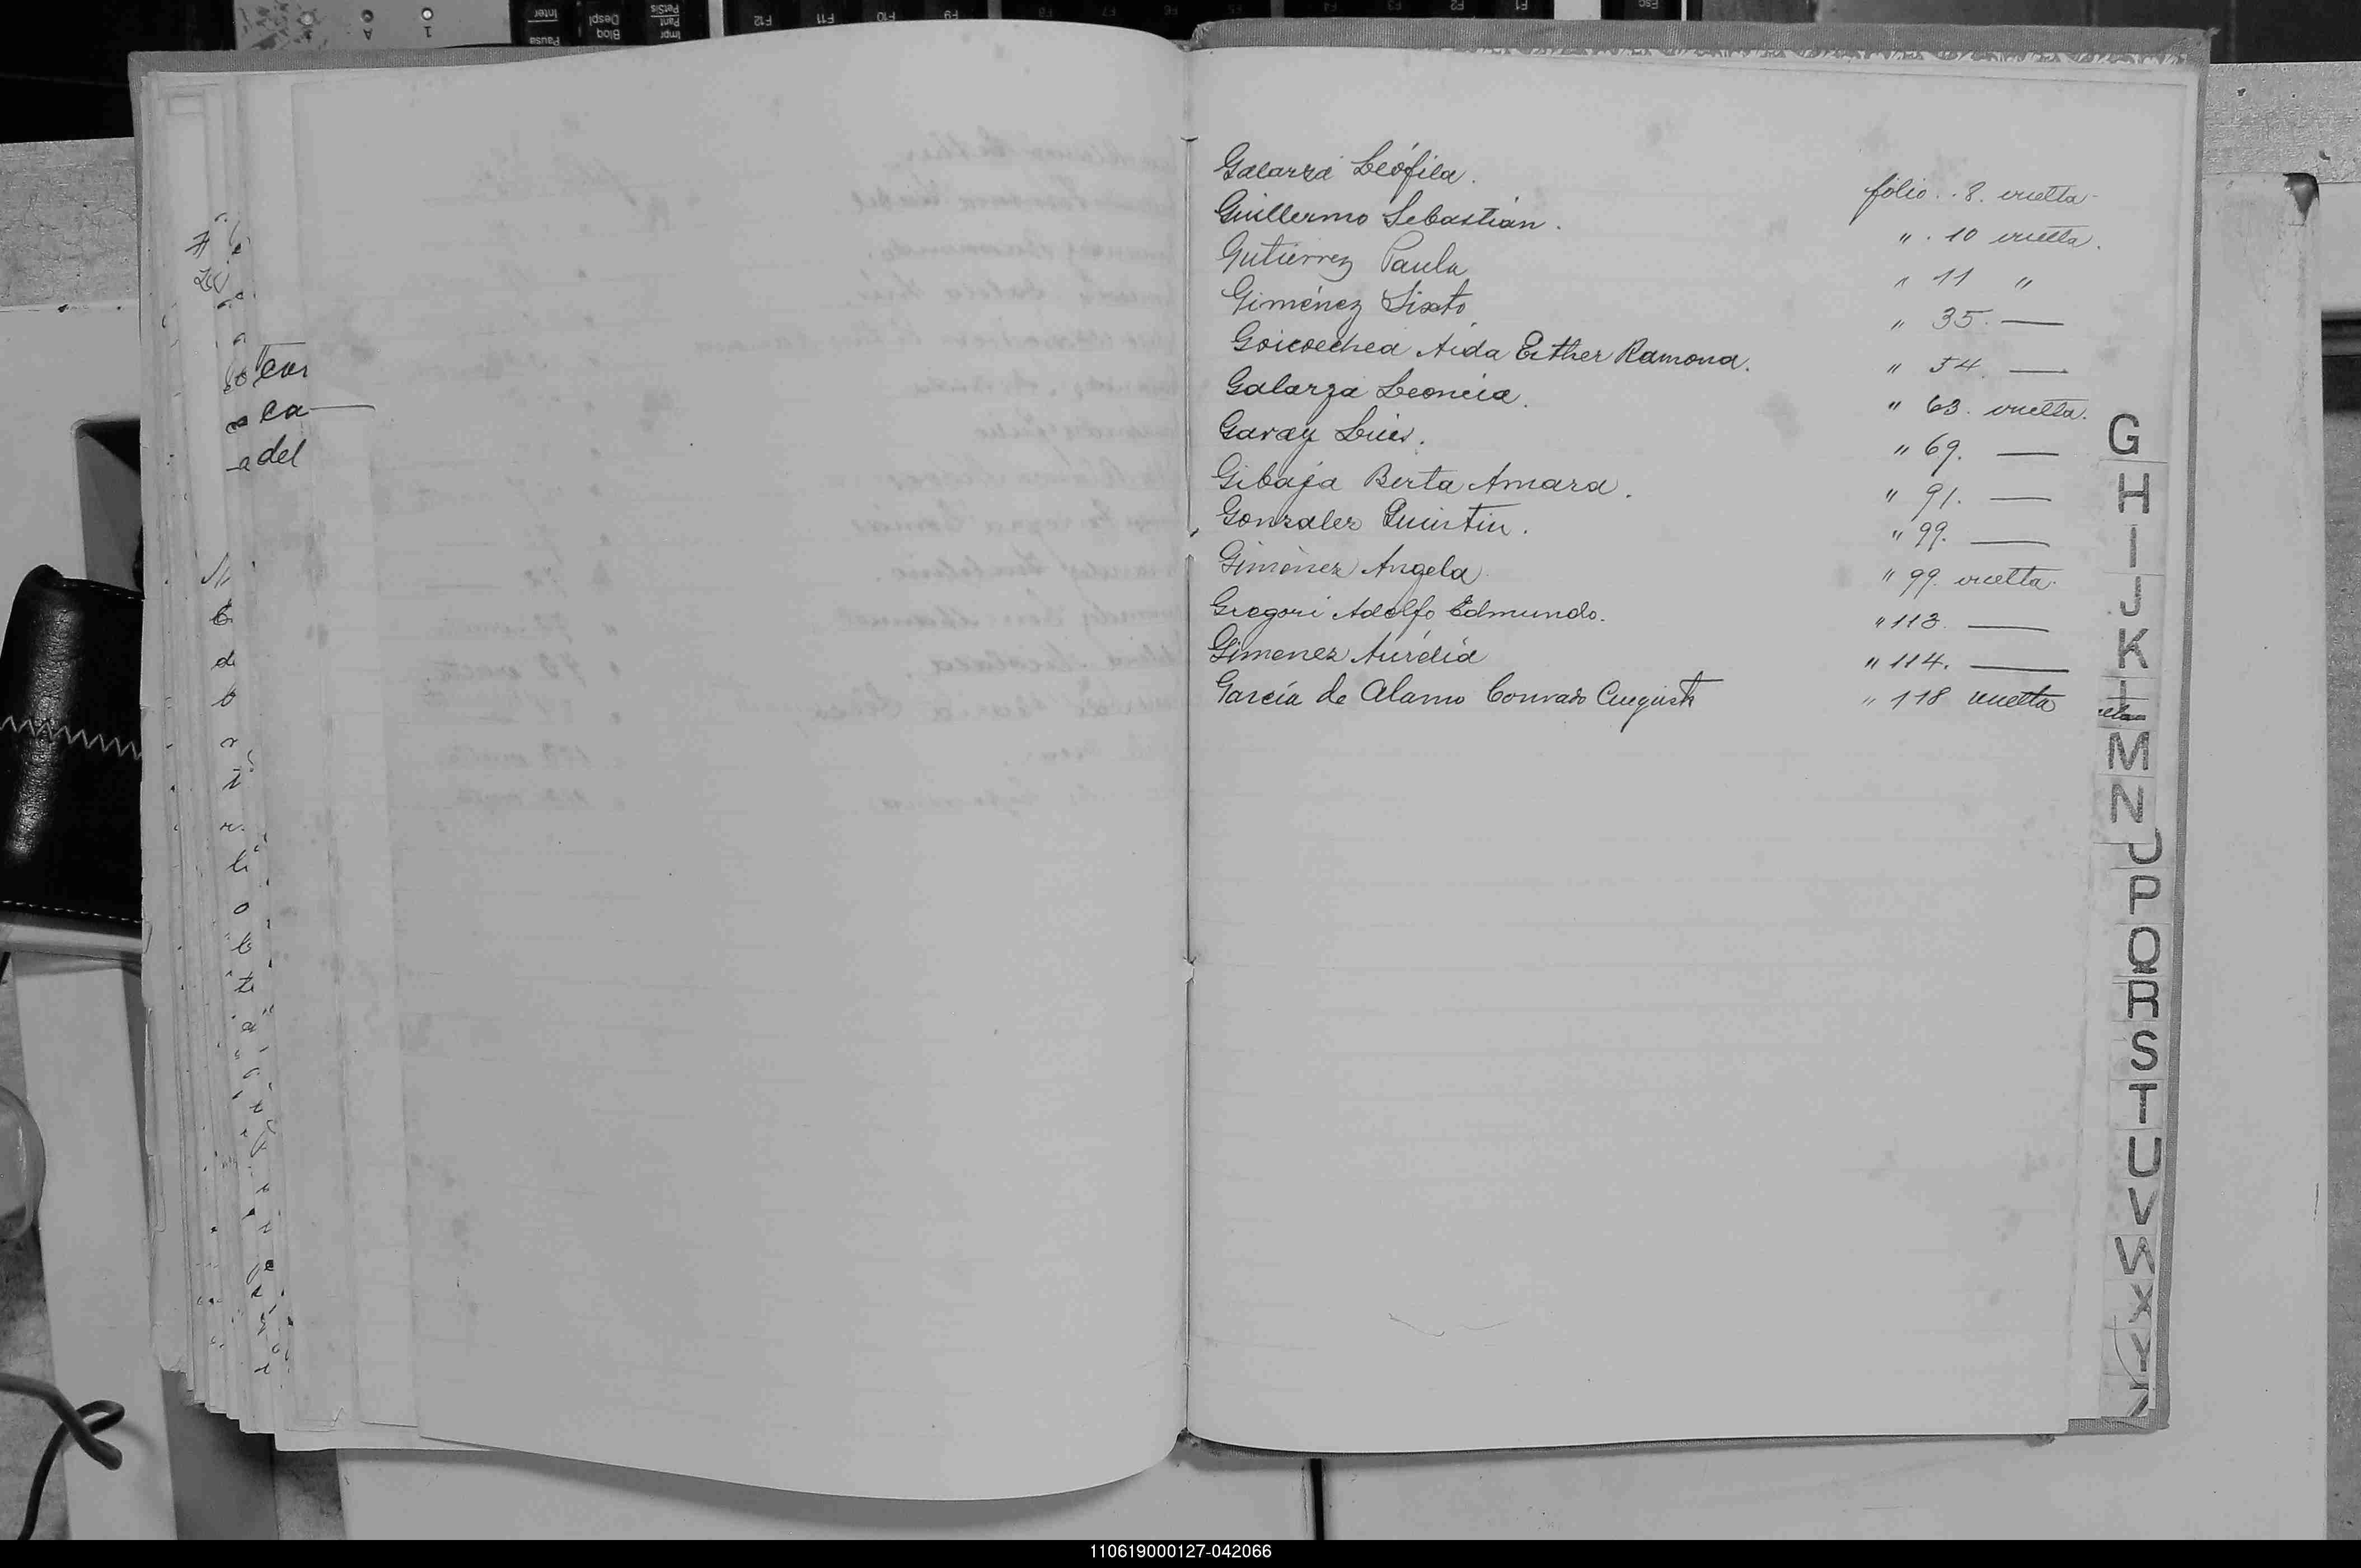 Galarza Leófila. folio. . 8. vuelta
Guillermo Sebastián. " . 10 vuelta.
Gutierrez Paula " 11 "
Giménez Sixto " 35. —
Goicoechea Aida Esther Ramona. " 54. —
Galarza Leoncia. " 63. vuelta.
Garay Luis. " 69. —
Gibaja Berta Amara. " 91. —
Gonzalez Quintin. " 99. —
Giménez Angela " 99. vuelta.
Gregori Adolfo Edmundo. " 113. —
Gimenez Aurelia " 114. —
García de Alamo Conrado Augusto " 118 vuelta
G
H
I
J
K
L
M
N
O
P
Q
R
S
T
U
V
W
X
Y
Z
ca
del
110619000127-042066